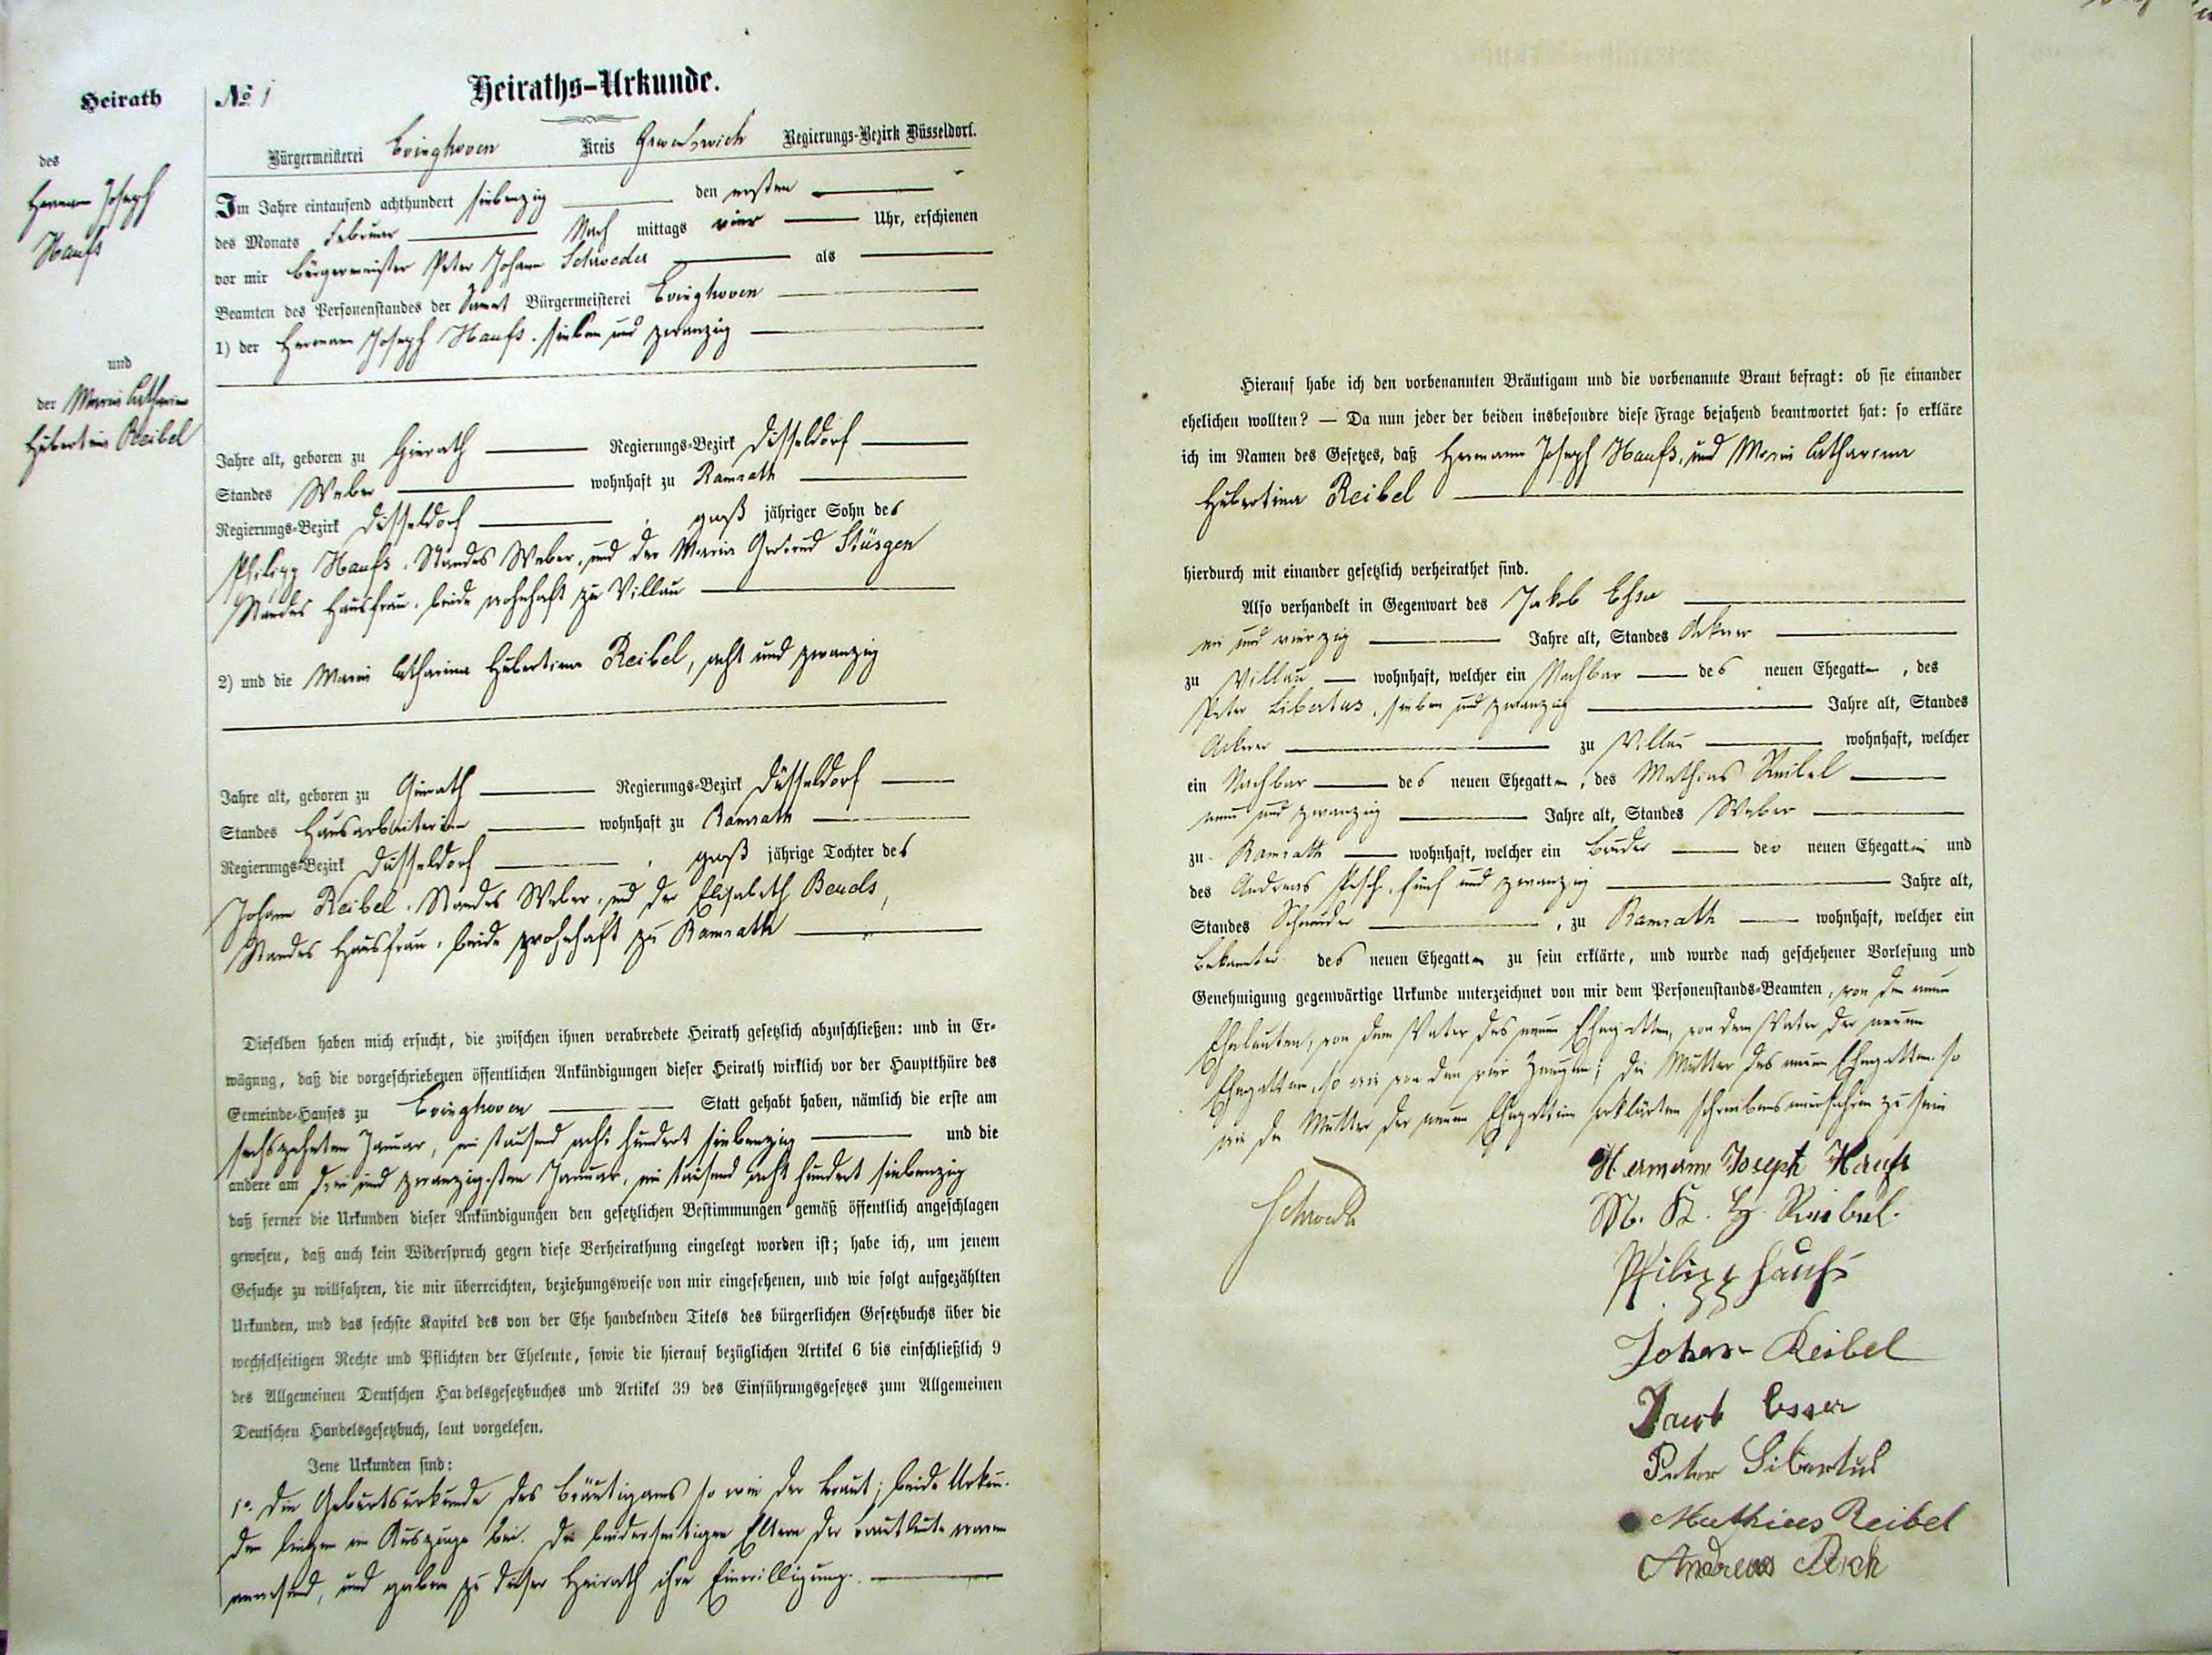 Heirath
des
Hermann Joseph
Haufs
und
der Maria Catharina
Hubertina Reibel
№ 1
Heiraths-Urkunde.
Bürgermeisterei Evinghoven Kreis Grevenbroich Regierungs-Bezirk Düsseldorf.
Im Jahre eintausend achthundert siebenzig den ersten
des Monats Februar Nach mittags vier Uhr, erschienen
vor mir Bürgermeister Peter Johann Schroeder als
Beamten des Personenstandes der Samt Bürgermeisterei Evinghoven
1) der Hermann Joseph Haufs, sieben und zwanzig
Jahre alt, geboren zu Gierath Regierungs-Bezirk Düsseldorf
Standes Weber wohnhaft zu Ramrath
Regierungs-Bezirk Düsseldorf, groß jähriger Sohn des
Philipp Haufs, Standes Weber, und der Maria Gertrud Stüsgen
Standes Hausfrau, beide wohnhaft zu Villau
2) und die Maria Catharina Hubertina Reibel, acht und zwanzig
Jahre alt, geboren zu Gierath Regierungs-Bezirk Düsseldorf
Standes Hausarbeiterin wohnhaft zu Ramrath
Regierungs-Bezirk Düsseldorf, groß jährige Tochter des
Johann Reibel, Standes Weber, und der Elisabeth
Standes Hausfrau, beide wohnhaft zu Ramrath
Dieselben haben mich ersucht, die zwischen ihnen verabredete Heirath gesetzlich abzuschließen: und in Er-
wägung, daß die vorgeschriebenen öffentlichen Ankündigungen dieser Heirath wirklich vor der Hauptthüre des
Gemeinde-Hauses zu Evinghoven Statt gehabt haben, nämlich die erste am
sechszehnten Januar, ein tausend acht hundert siebenzig und die
andere am drei und zwanzigsten Januar, ein tausend acht hundert siebenzig
daß ferner die Urkunden dieser Ankündigungen den gesetzlichen Bestimmungen gemäß öffentlich angeschlagen
gewesen, daß auch kein Widerspruch gegen diese Verheirathung eingelegt worden ist; habe ich, um jenem
Gesuche zu willfahren, die mir überreichten, beziehungsweise von mir eingesehenen, und wie folgt aufgezählten
Urkunden, und das sechste Kapitel des von der Ehe handelnden Titels des bürgerlichen Gesetzbuchs über die
wechselseitigen Rechte und Pflichten der Eheleute, sowie die hierauf bezüglichen Artikel 6 bis einschließlich 9
des Allgemeinen Deutschen Handelsgesetzbuches und Artikel 39 des Einführungsgesetzes zum Allgemeinen
Deutschen Handelsgesetzbuch, laut vorgelesen.
Jene Urkunden sind:
1º. Die Geburtsurkunde des Bräutigams so wie der Braut; beide Urkun-
den liegen im Auszuge bei. Die beiderseitigen Eltern der Brautleute waren
anwesend, und gaben zu dieser Heirath ihre Einwilligung.
Hierauf habe ich den vorbenannten Bräutigam und die vorbenannte Braut befragt: ob sie einander
ehelichen wollten? — Da nun jeder der beiden insbesondre diese Frage bejahend beantwortet hat: so erkläre
ich im Namen des Gesetzes, daß Hermann Joseph Haufs, und Maria Catharina
Hubertina Reibel
hierdurch mit einander gesetzlich verheirathet sind.
Also verhandelt in Gegenwart des Jakob Esser
ein und vierzig Jahre alt, Standes Ackerer
zu Villau wohnhaft, welcher ein Nachbar des neuen Ehegatten, des
Peter Libertus, sieben und zwanzig Jahre alt, Standes
Ackerer zu Villau wohnhaft, welcher
ein Nachbar des neuen Ehegatten, des Mathias Reibel
neun und zwanzig Jahre alt, Standes Weber
zu Ramrath wohnhaft, welcher ein Bruder der neuen Ehegattin und
des Andreas Pesch, fünf und zwanzig Jahre alt,
Standes Schneider, zu Ramrath wohnhaft, welcher ein
Bekannter des neuen Ehegatten zu sein erklärte, und wurde nach geschehener Vorlesung und
Genehmigung gegenwärtige Urkunde unterzeichnet von mir dem Personenstands-Beamten, von den neuen
Eheleuten, von dem Vater des neuen Ehegatten, von dem Vater der neuen
Ehegattin, so wie von den vier Zeugen; die Mutter des neuen Ehegatten so
wie die Mutter der neuen Ehegattin erklärten schreibensunerfahren zu sein
Hermann Joseph Haufs
Schroeder
M. K. H. Reibel.
Philipp Haufs
Johann Reibel
Jacob Esser
Peter Libertus
Mathias Reibel
Andreas Pesch